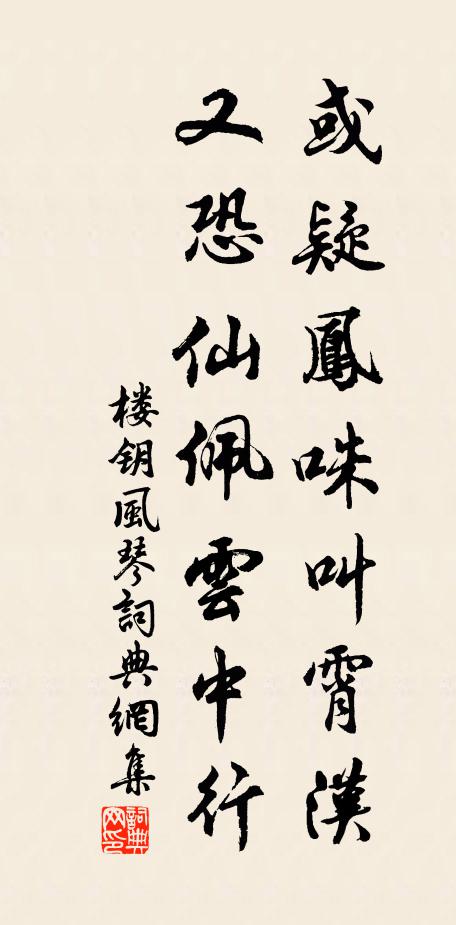 或疑鳳咮叫霄漢
又恐仙佩雲中行
楼钥風琴詞典網集
詞典网印